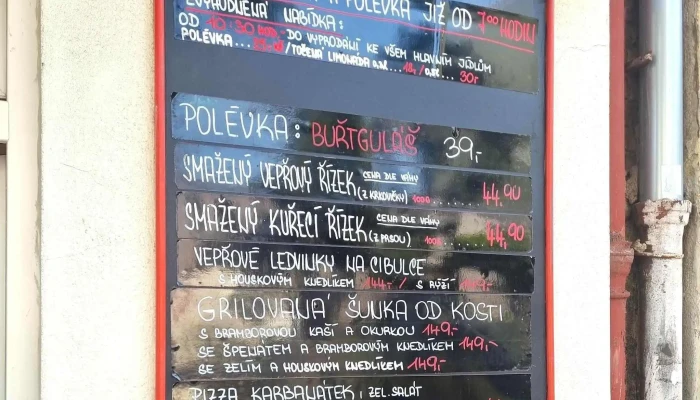 POLÉVKA JIŽ OD 7⁰⁰ HODIN
ZVÝHODNĚNÁ NABÍDKA:
OD 10:30 HOD. DO VYPRODÁNÍ KE VŠEM HLAVNÍM JÍDLŮM
POLÉVKA... /TOČENÁ LIMONÁDA ... 30,-
POLÉVKA: BUŘTGULÁŠ 39,-
SMAŽENÝ VEPŘOVÝ ŘÍZEK (Z KRKOVIČKY) CENA DLE VÁHY 100G ..... 44,90
SMAŽENÝ KUŘECÍ ŘÍZEK (Z PRSOU) CENA DLE VÁHY 100G ..... 44,90
VEPŘOVÉ LEDVINKY NA CIBULCE
S HOUSKOVÝM KNEDLÍKEM 144,- / S RÝŽÍ
GRILOVANÁ ŠUNKA OD KOSTI
S BRAMBOROVOU KAŠÍ A OKURKOU 149,-
SE ŠPENÁTEM A BRAMBOROVÝM KNEDLÍKEM 149,-
SE ZELÍM A HOUSKOVÝM KNEDLÍKEM 149,-
PIZZA KARBANÁTEK, ZEL. SALÁT